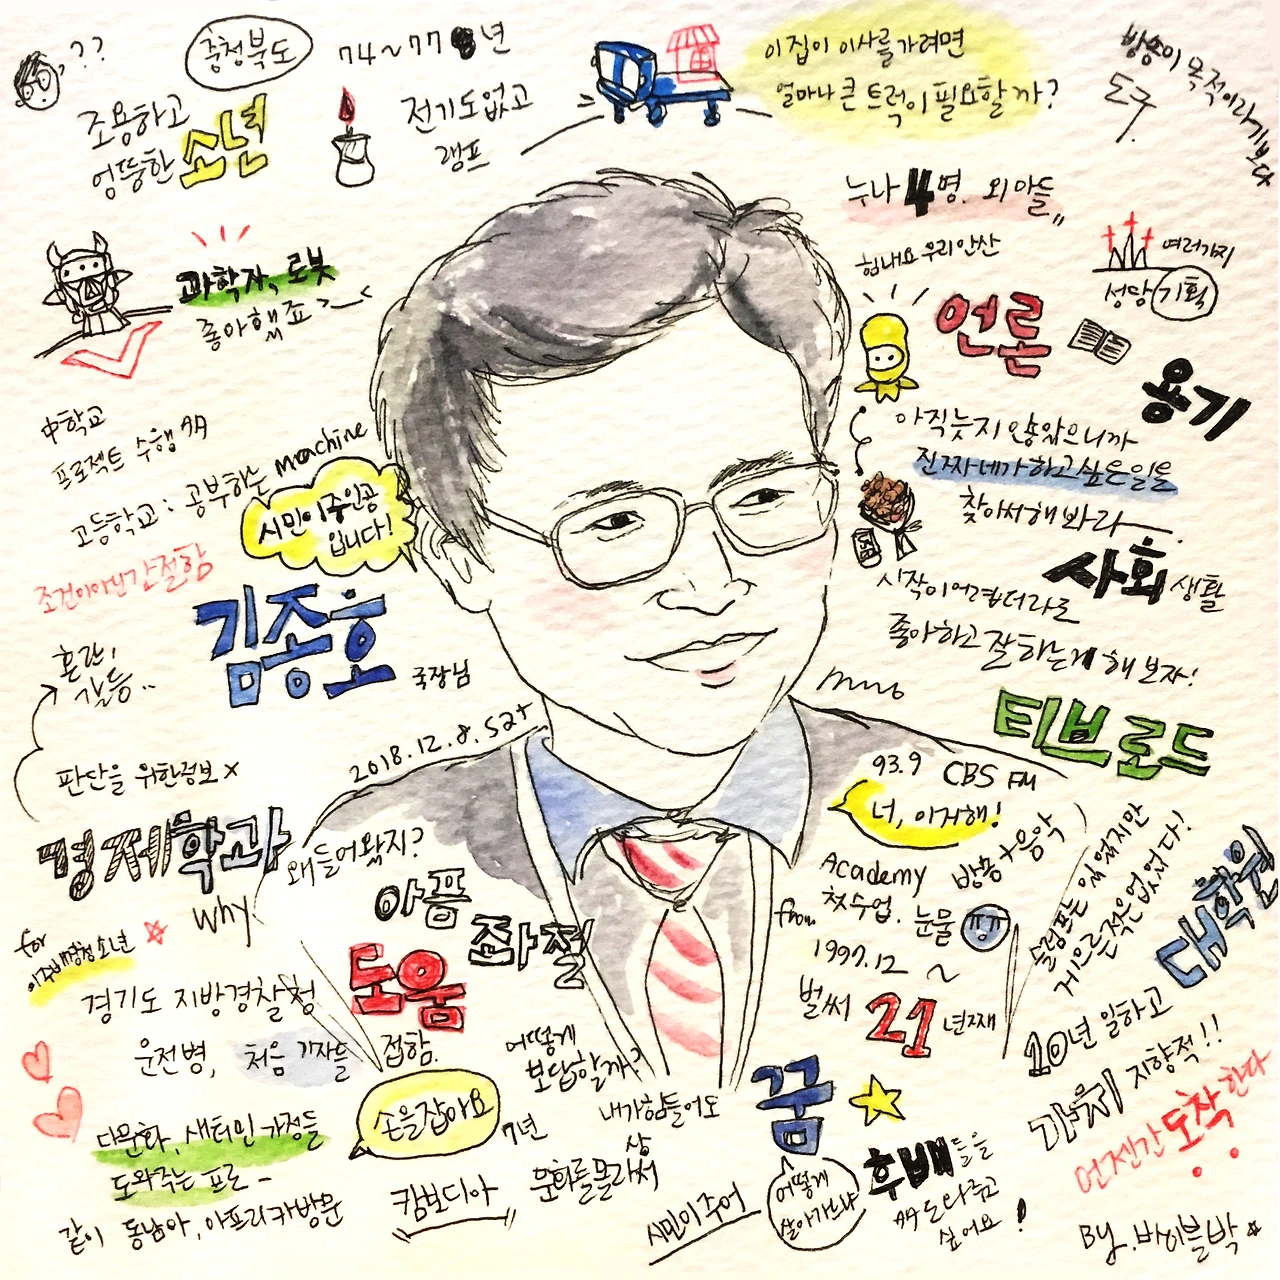 ??
충청북도
조용하고
엉뚱한 소년
74~77 년
전기도없고
램프
이집이 이사를가려면
얼마나 큰 트럭이 필요할까?
방송이 목적이라기보다
도구.
누나 4명. 외아들
힘내요 우리안산
여러가지
성당 기획
과학자, 로봇
좋아했죠
언론
용기
아직늦지 않았으니까
진짜네가하고싶은일을
찾아서해 봐라
中학교
프로젝트 수행
고등학교 : 공부하는 machine
조건이아닌간절함
시민이주인공
입니다!
김종호 국장님
사회생활
시작이어렵더라도
좋아하고 잘하는게 해 보자!
티브로드
혼란!
갈등..
판단을 위한정보 x
2018.12.8.sat
경제학과
why
왜들어왔지?
93.9 CBS FM
너, 이거해!
Academy
첫수업. 눈물 ㅠㅠ
방송+음악
from
1997.12 ~
벌써 21년째
슬럼프는 있었지만
게으른적은없었다!
대학원
10년 일하고
가치 지향적!!
언젠간 도착한다
아픔
좌절
도움
접함.
for
이주배경청소년
경기도 지방경찰청
운전병, 처음 기자들
어떻게
보답할까?
손을잡아요
다문화, 새터민 가정들
도와주는 프로
같이 동남아, 아프리카방문
7년
캄보디아
문화를몰라서
내가힘들어도
꿈
어떻게
살아가느냐
시민이주어
후배들을
도와주고
싶어요!
By.바이블박